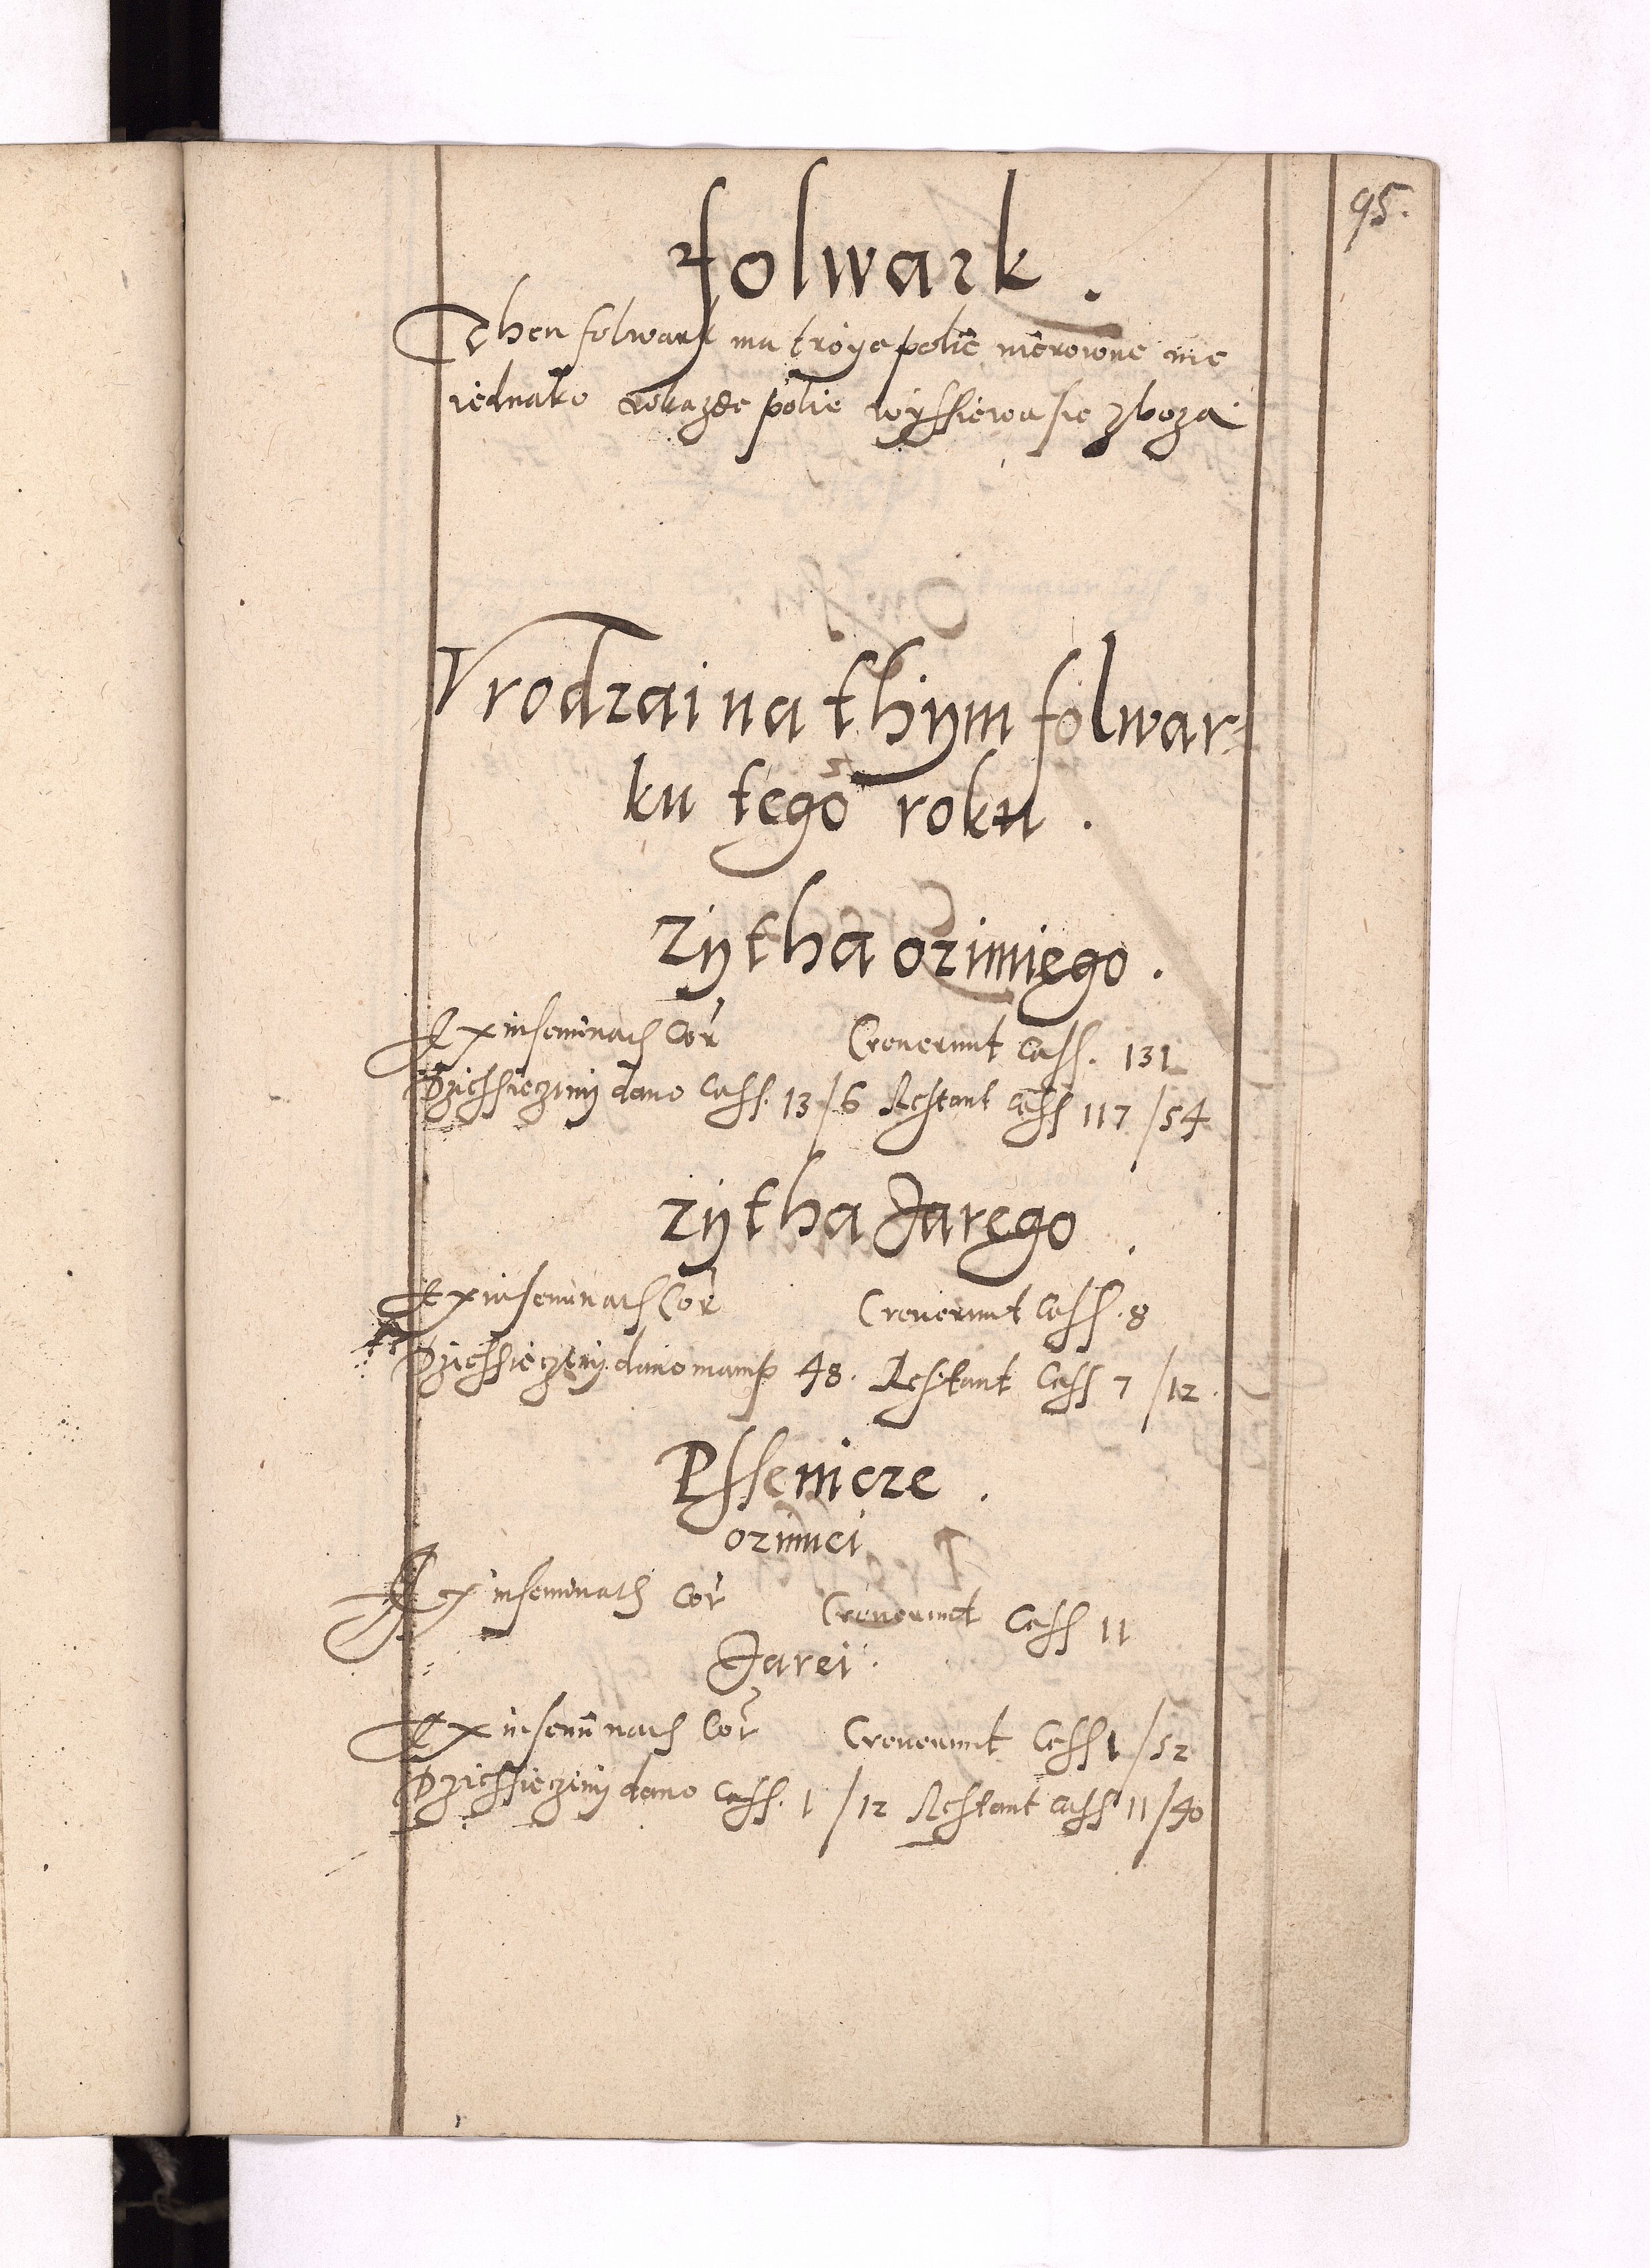 95.
Folwark.
Then folwark ma troye polie nierowne nie
iednako wkazde polie wyssiewa sie zboza
Vrodzai na thym folwar=
ku tego roku.
Zytha ozimiego.
Ex inseminatis Cor Creverunt Cass. 131
Dziessiecziny dano Cass. 13/6 Restant Cass 117/54
Zytha Jarego.
Ex inseminatis Cor Creverunt Cass. 8
Dziessiecziny dano mamp 48. Restant Cass 7/12.
Pssenicze.
ozimei
Ex inseminatis Cor Creverunt Cass 11
Jarei.
Ex inseminatis Cor Creverunt Cass 1/52
Dziessiecziny dano Cass. 1/12 Restant Cass 11/40